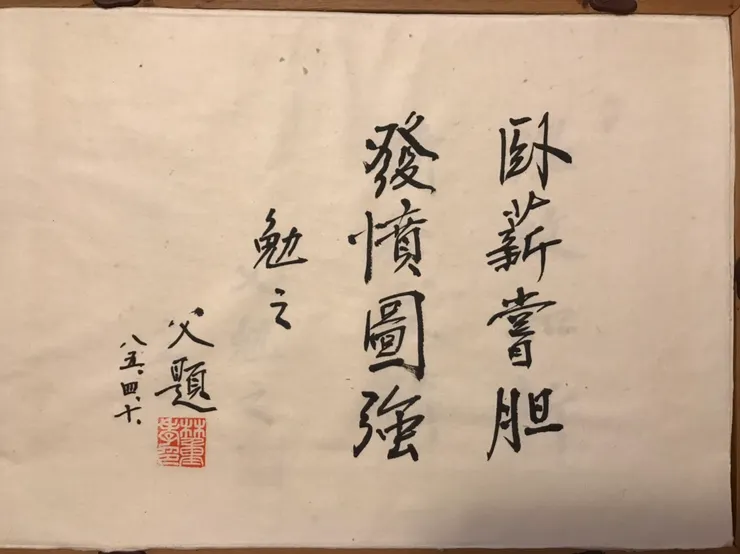 臥薪嘗胆
發憤圖強
勉之
父題
八五、四、十、